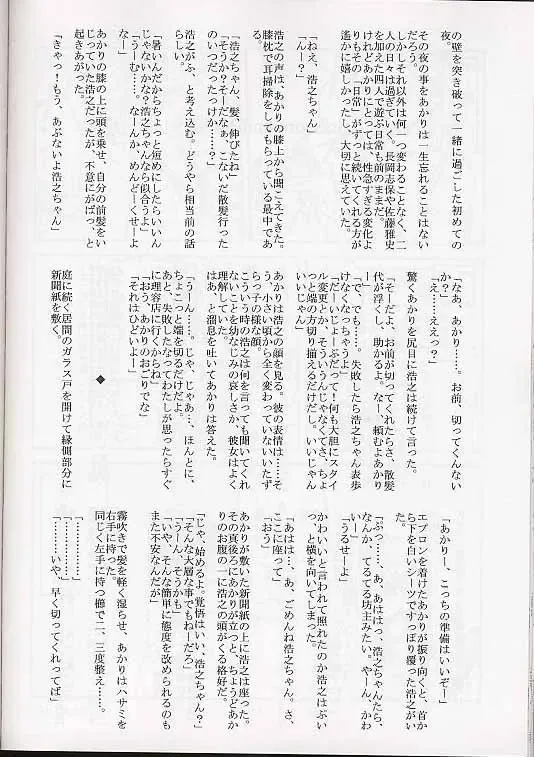 の壁を突き破って一緒に過ごした初めての
夜。
その夜の事をあかりは一生忘れることはない
だろう。
しかしそれ以外は何一つ変わることなく、二
人の日々は過ぎていく。長岡志保や佐藤雅史
を加えた四人で遊ぶ日常も前のままだ。
けれどあかりにとっては、性急すぎる変化よ
りもその「日常」がずっと続いてくれる方が
遙かに嬉しかったし、大切に思えていた。
「ねえ、浩之ちゃん」
「んー？」
浩之の声は、あかりの膝上から聞こえてきた。
膝枕で耳掃除をしてもらっている最中であ
る。
「浩之ちゃん、髪、伸びたね」
「そうか？そーだなぁ、こないだ散髪行った
のいつだったっけか……？」
浩之がふ、と考え込む。どうやら相当前の話
らしい。
「暑いんだからちょっと短めにしたらいいん
じゃないかな？浩之ちゃんなら似合うよ」
「うーむ……。なーんか、めんどくせーよ
なー」
あかりの膝の上に頭を乗せ、自分の前髪をい
じっていた浩之だったが、不意にがばっ、と
起きあがった。
「きゃっ！もう、あぶないよ浩之ちゃん」
「なあ、あかり……。お前、切ってくんない
か？」
「え……ええっ？」
驚くあかりを尻目に浩之は続けて言った。
「そーだよ、お前が切ってくれたらさ、散髪
代が浮くし、助かるよ。なー、頼むよあかり
「で、でも……。失敗したら浩之ちゃん表歩
けなくなっちゃうよ」
「だーいじょーぶだって！何も大胆にスタイ
ル変更とか、そういうんじゃなくてさ、ちょ
っと端の方切り揃えるだけだし。いいじゃん
いいじゃん」
あかりは浩之の顔を見る。彼の表情は……そ
う、小さい頃から全く変わっていないいたず
らっ子の様な顔。
こういう時の浩之は何を言っても聞いてくれ
ないことを幼なじみの哀しさか、彼女はよく
理解していた。
はあ、と溜息を吐いてあかりは答えた。
「うーん……。じゃ、じゃあ…、ほんとに、
ちょこっと端を切るだけだよ。
あと、失敗したなってわたしが思ったらすぐ
に理容店に行くからね」
「おう、あかりのおごりでな」
「それはひどいよー」
◆
庭に続く居間のガラス戸を開けて縁側部分に
新聞紙を敷く。
「あかりー、こっちの準備はいいぞー」
エプロンを着けたあかりが振り向くと、首か
ら下を白いシーツですっぽり覆った浩之がい
た。
「ぷっ……。あ、あははっ、浩之ちゃんたら、
なんか、てるてる坊主みたい。やーん、かわ
いー」
「うるせーよ」
かわいいと言われて照れたのか浩之はぷい
っ、と横を向いてしまった。
「あはは…。あ、ごめんね浩之ちゃん。さ、
ここに座って」
「おう」
あかりが敷いた新聞紙の上に浩之は座った。
その真後ろにあかりが立つと、ちょうどあか
りのお腹の一に浩之の頭がくる格好だ。
「じゃ、始めるよ。覚悟はいい、浩之ちゃん？」
「そんな大層な事でもねーだろ」
「うーん、そうかも」
「いや、そんな簡単に態度を改められるのも
また不安なんだが」
霧吹きで髪を軽く湿らせ、あかりはハサミを
右手に持った。
同じく左手に持つ櫛で二、三度整え……。
「……………」
「……………」
「……いや、早く切ってくれってば」